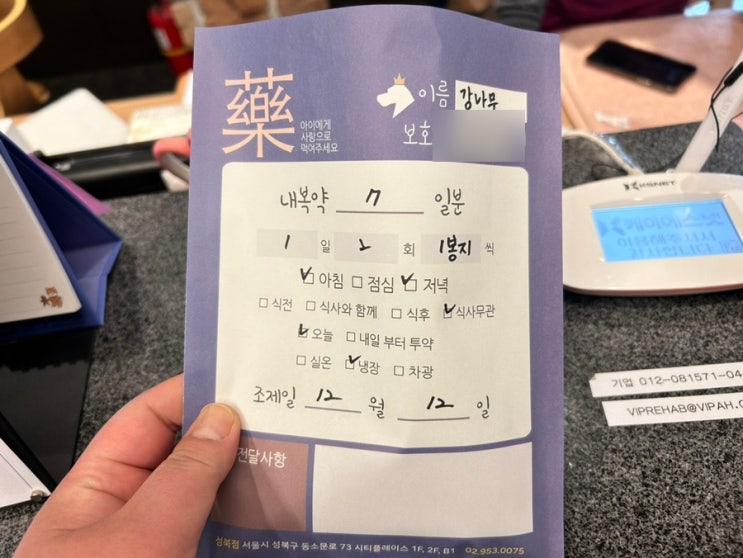 藥
아이에게
사랑으로
먹여주세요
이름 강나무
보호
내복약 7 일분
1 일 2 회 1봉지 씩
✓아침 □ 점심 ✓저녁
□ 식전 □ 식사와 함께 □ 식후 ✓식사무관
✓오늘 □ 내일 부터 투약
□ 실온 ✓냉장 □ 차광
조제일 12 월 12 일
전달사항
성북점 서울시 성북구 동소문로 73 시티플레이스 1F, 2F, B1 02.953.0075
KSNET
케이에스넷
이용해주셔서
감사합니다
기업 012-081571-04
VIPREHAB@VIPAH.